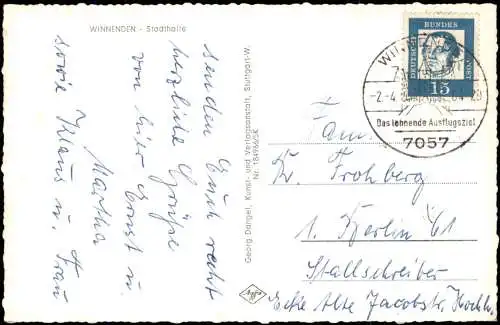 WINNENDEN - Stadthalle
senden Euch recht
herzliche Grüße
von Ernst u.
Martha
sowie Klaus u. Frau
Georg Dangel, Kunst- und Verlagsanstalt, Stuttgart-W.
Nr. 184966/5K
Agfa
DEUTSCHE
BUNDES
POST
15
-2.-4.
Das lohnende Ausflugsziel
7057
Fam.
K. Frohberg
1 Berlin 61
Stallschreiber
Ecke Alte Jacobstr. Hochh.